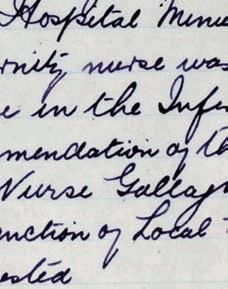 Hospital Minu
ernity nurse was
e in the Infir
mendation of th
Nurse Gallagh
unction of Local
ested